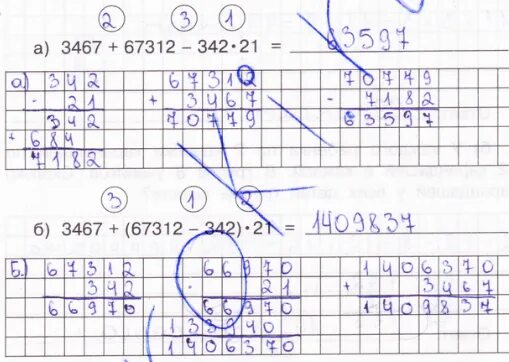 2 3 1
а) 3467 + 67312 – 342·21 = 63597
а) 342 67312 70779
· 21 + 3467 - 7182
342 70779 63597
+ 684
7182
3 1 2
б) 3467 + (67312 – 342)·21 = 1409837
Б.) 67312 66970 1406370
342 · 21 + 3467
66970 66970 1409837
133940
1406370